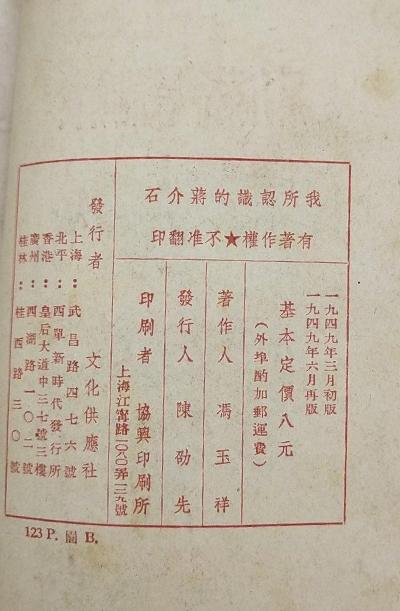 我所認識的蔣介石
有著作權★不准翻印
一九四九年三月初版
一九四九年六月再版
基本定價八元
（外埠酌加郵運費）
著作人 馮玉祥
發行人 陳劭先
印刷者 協興印刷所
上海江甯路一〇八〇弄一三九號
發行者 文化供應社
上海：武昌路四七六號
北平：西單新時代發行所
香港：皇后大道中三七號三樓
廣州：西湖路一〇二號
桂林：桂西路三〇號
123 P. 圖 B.